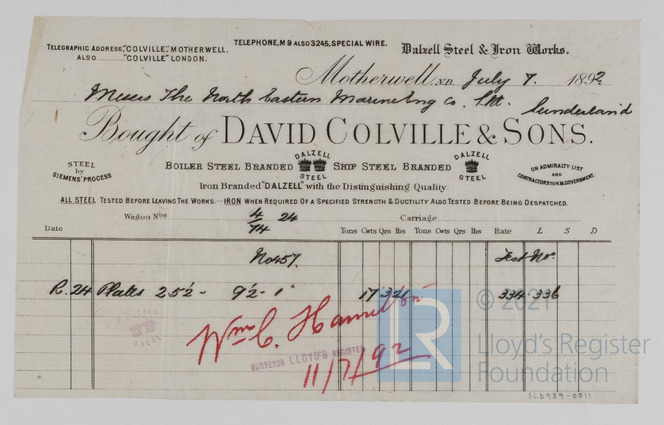 TELEGRAPHIC ADDRESS, "COLVILLE", MOTHERWELL.
ALSO "COLVILLE" LONDON.
TELEPHONE, M 9 ALSO 3245, SPECIAL WIRE.
Dalzell Steel & Iron Works.
Motherwell, N.B. July 7. 1892
Messrs The North Eastern Marine Eng Co. Ltd. Sunderland
Bought of DAVID COLVILLE & SONS.
STEEL
by
SIEMENS' PROCESS
BOILER STEEL BRANDED DALZELL STEEL SHIP STEEL BRANDED DALZELL STEEL
ON ADMIRALTY LIST
AND
CONTRACTORS TO H.M. GOVERNMENT.
Iron Branded "DALZELL" with the Distinguishing Quality
ALL STEEL TESTED BEFORE LEAVING THE WORKS.—IRON WHEN REQUIRED OF A SPECIFIED STRENGTH & DUCTILITY ALSO TESTED BEFORE BEING DESPATCHED.
Wagon Nos 4/74 24 Carriage
Date Tons Cwts Qrs lbs Tons Cwts Qrs lbs Rate L S D
No 457. Test No.
R. 24 Plates 25 2 - 9 2 - 1" 17 3 26 334 336
Wm C. Hamilton
SURVEYOR LLOYD'S REGISTER
11/7/92
© 2021
LR
Lloyd's Register
Foundation
SLD989-0011